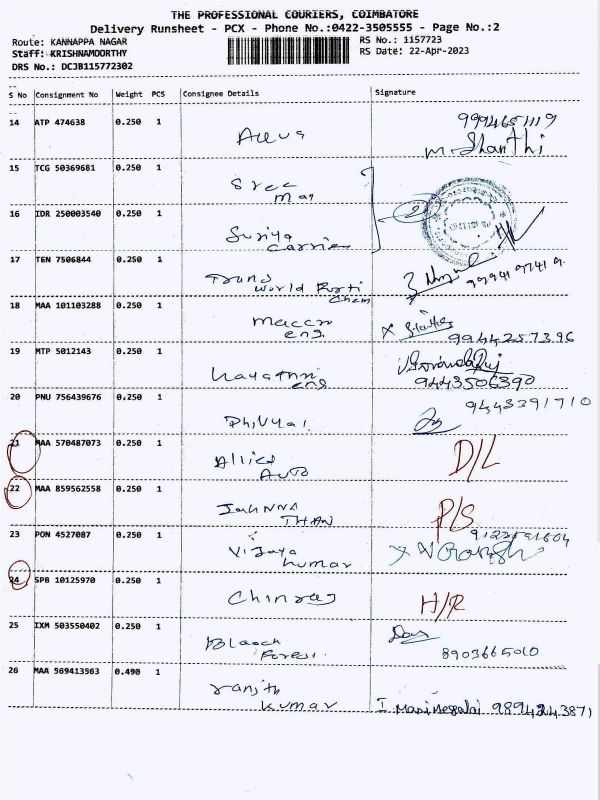 THE PROFESSIONAL COURIERS, COIMBATORE
Delivery Runsheet - PCX - Phone No.:0422-3505555 - Page No.:2
Route: KANNAPPA NAGAR
RS No.: 1157723
Staff: KRISHNAMOORTHY
RS Date: 22-Apr-2023
DRS No.: DCJB115772302
S No Consignment No Weight PCS Consignee Details Signature
14 ATP 474638 0.250 1
9994651119
M. Shanthi
15 TCG 50369681 0.250 1 Sree
mag
16 IDR 250003540 0.250 1 Suriya
Carrier
17 TEN 7506844 0.250 1 Trans
world Ferti
Chem
18 MAA 101103288 0.250 1
eng.
9944257396
19 MTP 5012143 0.250 1
eng
9443506390
20 PNU 756439676 0.250 1
9443391710
21 MAA 570487073 0.250 1 Allied
Auto
D/L
22 MAA 859562558 0.250 1
P/S
23 PON 4527087 0.250 1 Vijaya
kumar
24 SPB 10125970 0.250 1 Chinraj
H/R
25 IXM 503550402 0.250 1
Forest.
8903665010
26 MAA 569413563 0.490 1 ranjith
kumar